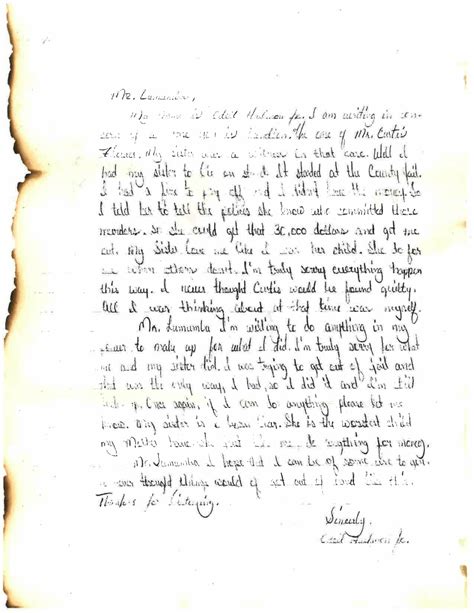 Mr. Lumumba,
My name is Odell Hallmon Jr. I am writing in con-
cern of a case you is handlien. The case of Mr. Curtis
Flowers. My sister was a witness in that case. Well I
had my sister to lie on stand. It started at the County Jail.
I had a fine to pay off and I didn't have the money. So
I told her to tell the polices she know who committed them
murders. So she could get that 30,000 dollars and get me
out. My Sister love me like I was her child. She do for
me when others dont. I'm truly sorry everything happen
this way. I never thought Curtis would be found guilty.
All I was thinking about at that time was myself.
Mr. Lumumba I'm willing to do anything in my
power to make up for what I did. I'm truly sorry for what
me and my sister did. I was trying to get out of jail and
that was the only way, I had, so I did it and I'm still
Once again, if I can do anything please let me
know. My sister is a liar. She is the worstest child
my Mother have she just like me do anything for money.
Mr. Lumumba I hope that I can be of some use to you.
I never thought things would of get out of hand like this.
Thanks for listening.
Sincerly,
Odell Hallmon Jr.